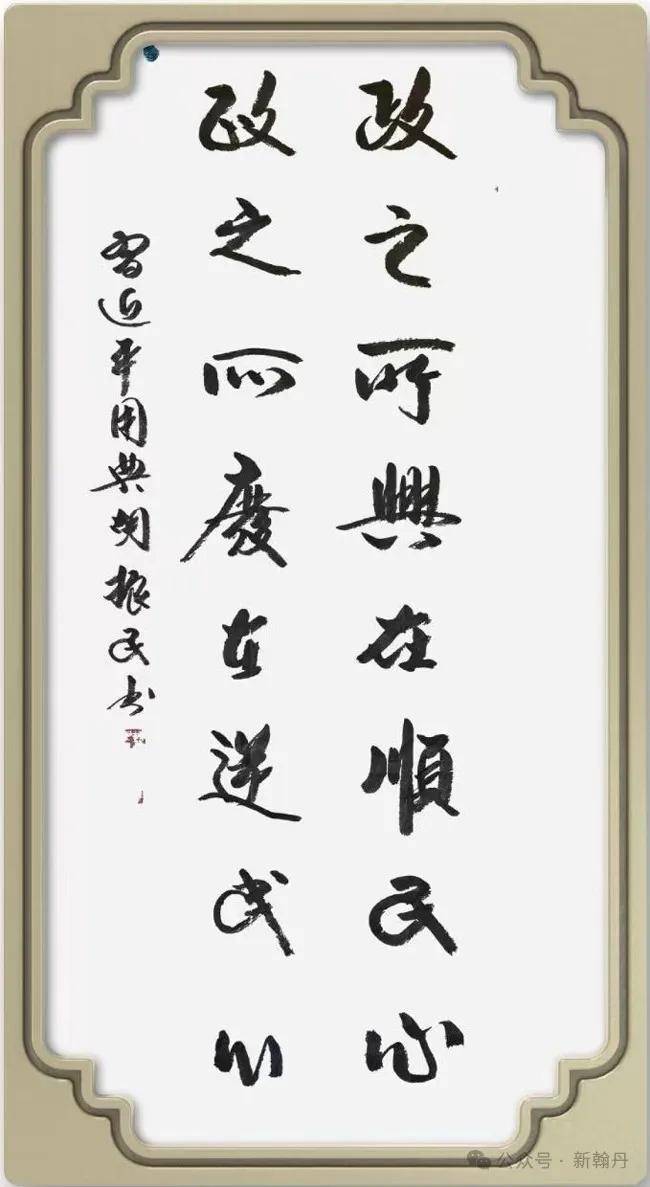 政之所興在順民心
政之所廢在逆民心
習近平用典胡振民书
公众号·新翰丹